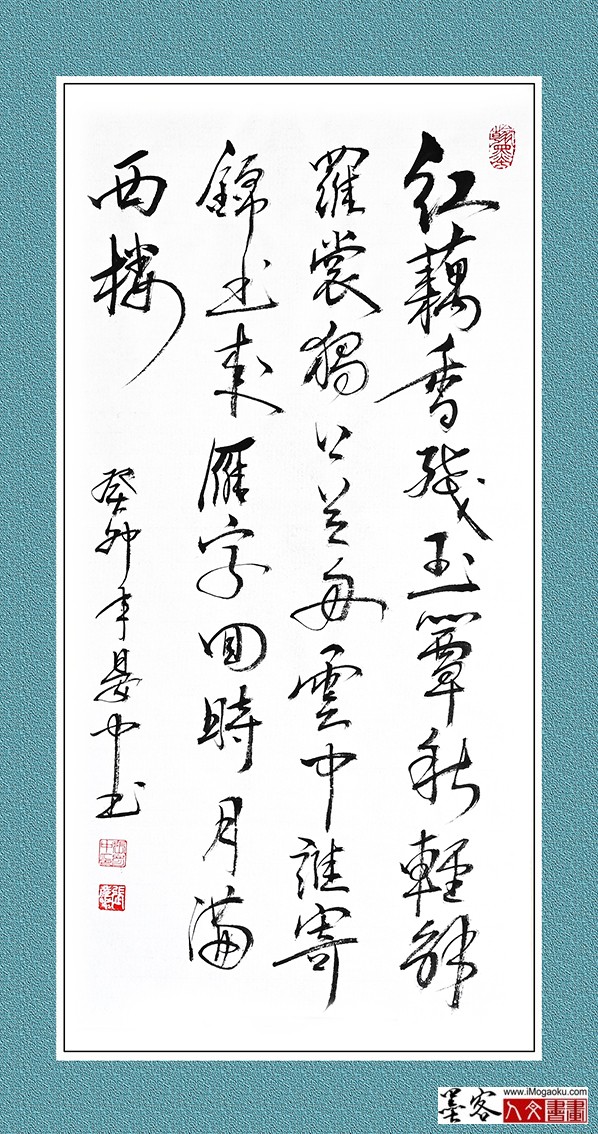 红藕香残玉簟秋輕解
羅裳獨上兰舟雲中誰寄
錦书来雁字回時月満
西楼
癸卯年晏中书
www.iMogaoku.com
墨客人文書畫